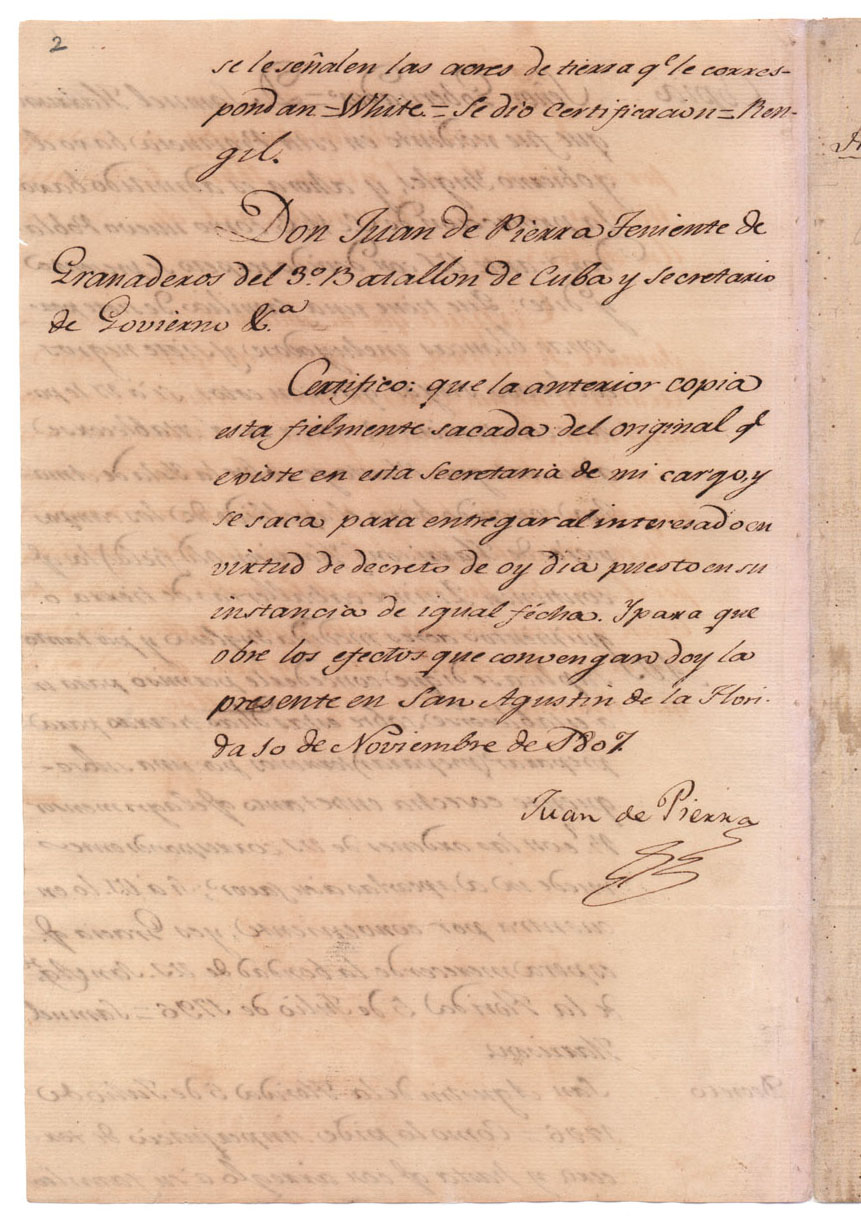 2
se le señalen las acres de tierra qe. le corres-
pondan = White = Se dio Certificacion = Ren-
gil.
Don Juan de Pierra Teniente de
Granaderos del 3.o Batallon de Cuba y Secretario
de Govierno &.a
Certifico: que la anterior copia
esta fielmente sacada del original qe.
existe en esta Secretaria de mi cargo, y
se saca para entregar al interesado en
virtud de decreto de oy dia puesto en su
instancia de igual fecha. Y para que
obre los efectos que convengan doy la
presente en San Agustin de la Flori-
da 10 de Noviembre de 1807.
Juan de Pierra